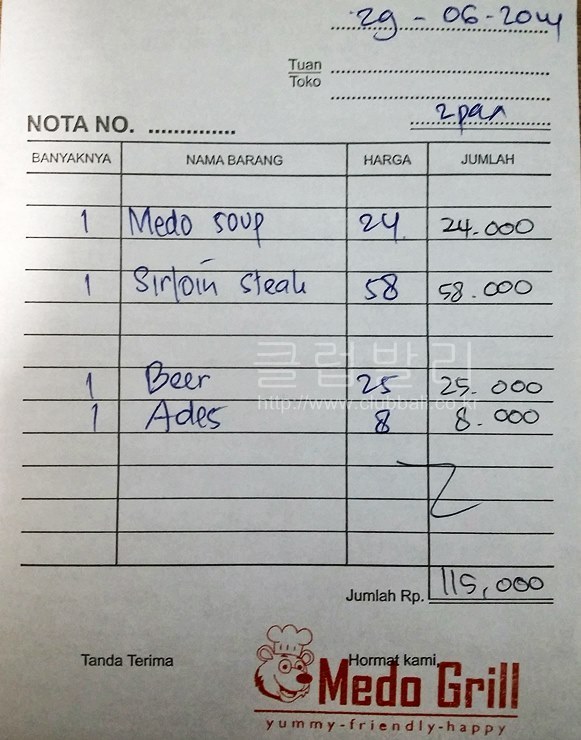 29-06-2014
Tuan
Toko
2 pax
NOTA NO. ..............
BANYAKNYA NAMA BARANG HARGA JUMLAH
1 Medo soup 24 24.000
1 Sirloin steak 58 58.000
클럽발리
1 Beer 25 25.000
http://www.clubbali.co.kr
1 Ades 8 8.000
Jumlah Rp. 115,000
Tanda Terima Hormat kami,
Medo Grill
yummy-friendly-happy